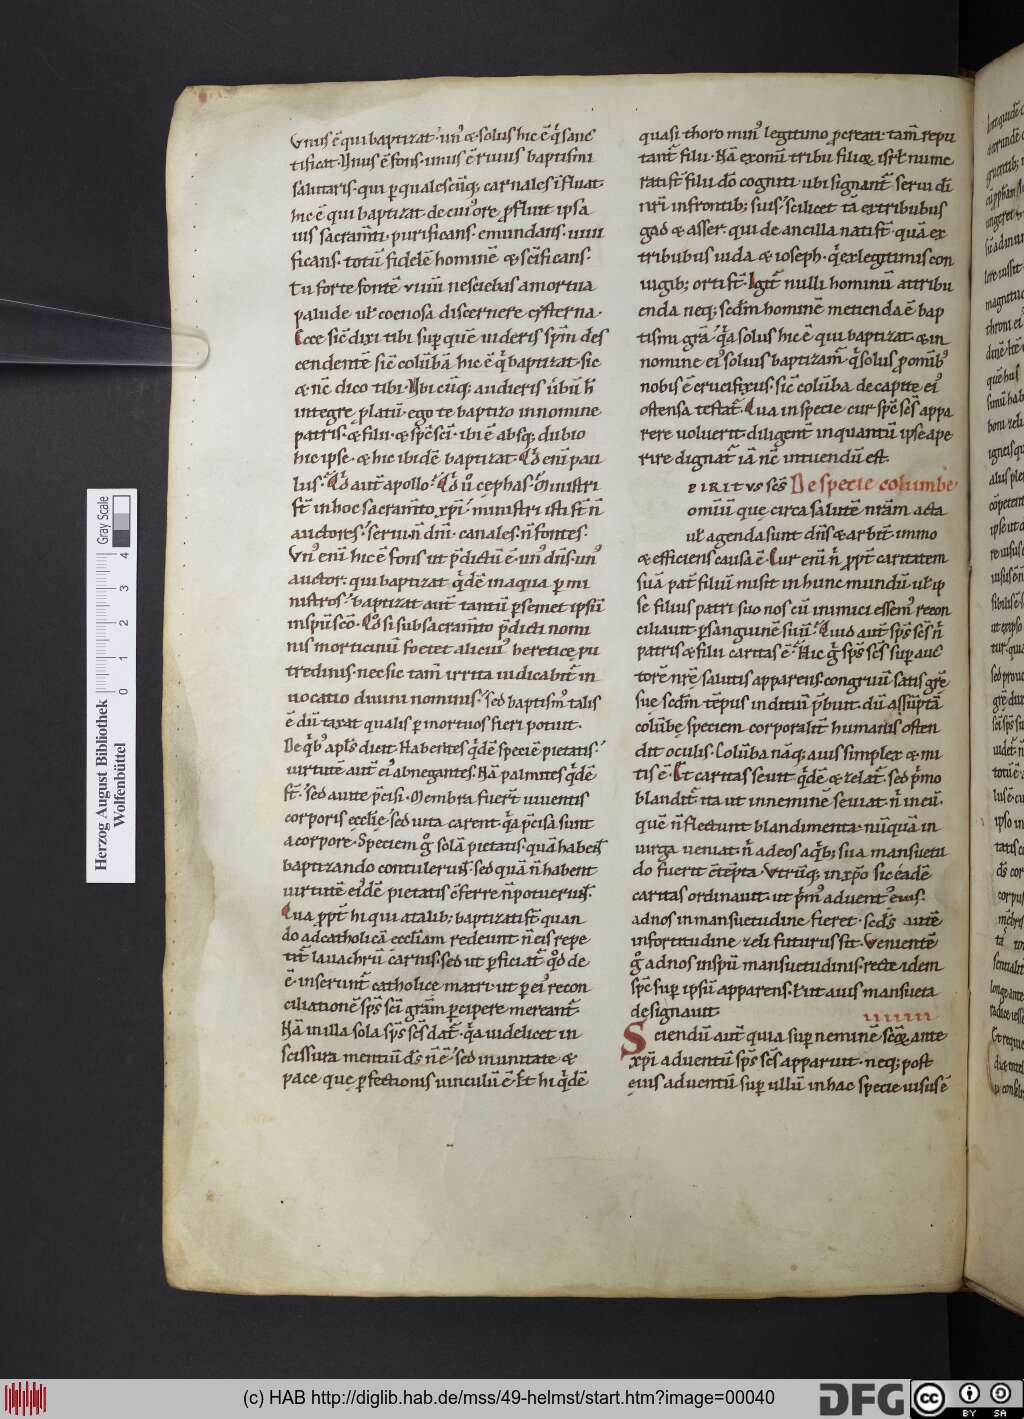 Vnus ē qui baptizat· unꝰ ⁊ solus hic ē q̇ sanc
tificat· Vnus ē fons· unus ē riuus baptismi
salutaris· qui ꝑ qualescūq; carnales īfluat·
hic ē qui baptizat· de cuiꝰ ore ꝓfluit ipsa
uis sacram̄ti· purificans· emundans· uiui
ficans· totū fidelē hominē & sc̄ificans·
Tu forte fontē uiuū nesciebas a mortua
palude uł coenosa discernere cysterna·
Ecce sic̄ dixi tibi· suꝑ quē uideris sp̄m des
cendentē sic̄ colūbā· hic ē q̇ baptizat· sic
& nc̄ dico tibi· Vbicūq; audieris ūbū h̄
integre ꝓlatū· ego te baptizo in nomine
patris· & filii· & sp̄c sc̄i· ibi ē absq; dubio
hic ipse· & hic ibidē baptizat· Qd̄ enī pau
lus· Qd̄ aut̄ apollo· Qd̄ u̇o cephas· Ministri
st̄ in hoc sacram̄to xp̄i· ministri isti st̄ n̄
auctores· serui n̄ dn̄i· canales n̄ fontes·
Vnꝰ enī hic ē fons ut p̄dictū ē· unꝰ dn̄s· unꝰ
auctor· qui baptizat q̇dē in aqua ꝑ mi
nistros· baptizat aut̄ tantū ꝑ semet ipsū
in sp̄u sc̄o· Qd̄ si sub sacram̄to p̄dicti nomi
nis morticinū foetet alicuiꝰ hereticę pu
tredinis· nec sic tam̄ irrita iudicabit̄ in
uocatio diuini nominis· sed baptismꝰ talis
ē dū taxat qualis ꝑ mortuos fieri potuit·
De q̇bꝰ apl̄s dicit· Habentes q̇dē speciē pietatis·
uirtutē aut̄ eiꝰ abnegantes· Nā palmites q̇dē
st̄· sed a uite p̄cisi· Membra fuer̄t uiuentis
corporis eccl̄ię· sed uita carent· q̇a p̄cisa sunt
a corpore· Speciem g̊ solā pietatis· quā habent
baptizando contulerunt· sed quā n̄ habent
uirtutē eiꝰdē pietatis c̄ferre n̄ potuerunt·
Qua ꝓpt̄ hi qui a talib; baptizati st̄ quan
do ad catholicā eccl̄iam redeunt n̄ eis repe
tit̄ lauachrū carnis· sed ut ꝑficiat̄ qd̊ de
ē· inserunt̄ catholicę matri· ut ꝑ eiꝰ recon
ciliationē sp̄s sc̄i gr̄am ꝑcipere mereant̄·
Nā in illa sola sp̄s sc̄s dat̄· q̇a uidelicet in
scissura mentiū d̄s n̄ ē· sed in unitate &
pace quę ꝑfectionis uinculū ē· Et hi q̇dē
quasi thoro minꝰ legitimo ꝓcreati· tam̄ repu
tant̄ filii· Nā ex omī tribu filioꝝ isr̄l nume
rati st̄ filii dō cogniti· ubi signant̄ serui dī
nr̄i in frontib; suis· scilicet tā ex tribubus
gad & asser· qui de ancilla nati st̄· quā ex
tribubus iuda & ioseph· q̇ ex legitimis con
iugib; orti st̄· Igit̄ nulli hominū attribu
enda· neq; scdm̄ hominē metienda ē bap
tismi gr̄a· q̇a solus hic ē qui baptizat· & in
nomine eiꝰ soliuꝰ baptizam̄· q̇ solus ꝓ omībꝰ
nobis ē crucifixus· sic̄ colūba de capite eiꝰ
ostensa testat̄· Qua in specie cur sp̄c sc̄s appa
rere uoluerit· diligent̄ in quantū ipse ape
rire dignat̄ iā nc̄ intuendū est·
PIRITVS sc̄s De specie columbe
omīū que circa salutē nr̄am acta
uł agenda sunt dn̄s & arbit̄· immo
& efficiens causa ē· Cur enī n̄ ꝓpt̄ caritatem
suā pat̄ filiū misit in hunc mundū· uł ip
se filius patri suo nos cū inimici essemꝰ recon
ciliauit ꝑ sanguinē suū· Quid aut̄ sp̄s sc̄s n̄
patris & filii caritas ē· Hic g̊ sp̄s sc̄s suꝑ auc
torē nr̄ę salutis apparens· congruū satis gr̄ę
suę scdm̄ tēpus inditiū p̄buit· dū assūpta
colūbę speciem corporalit̄ humanis osten
dit oculis· Colūba nāq; auis simplex & mi
tis ē· Et caritas seuit q̇dē & zelat̄· sed p̄mo
blandit̄ ita ut in neminē seuiat· n̄ in eū·
quē n̄ flectunt blandimenta· nūquā in
uirga ueniat· n̄ ad eos a q̇b; sua mansuetu
do fuerit c̄tēpta· Vtrūq; in xp̄o sic eadē
caritas ordinauit· ut p̄mꝰ aduentꝰ eius
ad nos in mansuetudine fieret· sed s aute
in fortitudine zeli futurus sit· Venientē
g̊ ad nos in sp̄u mansuetudinis· recte idem
sp̄c suꝑ ipsū apparens· sic̄ut auis mansueta
designauit
Sciendū aut̄ quia suꝑ neminē sc̄oꝝ ante
xp̄i aduentū sp̄s sc̄s apparuit· neq; post
eius aduentū suꝑ ullū in hac specie uisus ē
Herzog August Bibliothek
Wolfenbüttel
Gray Scale
0 1 2 3 4
(c) HAB http://diglib.hab.de/mss/49-helmst/start.htm?image=00040
DFG
cc BY SA